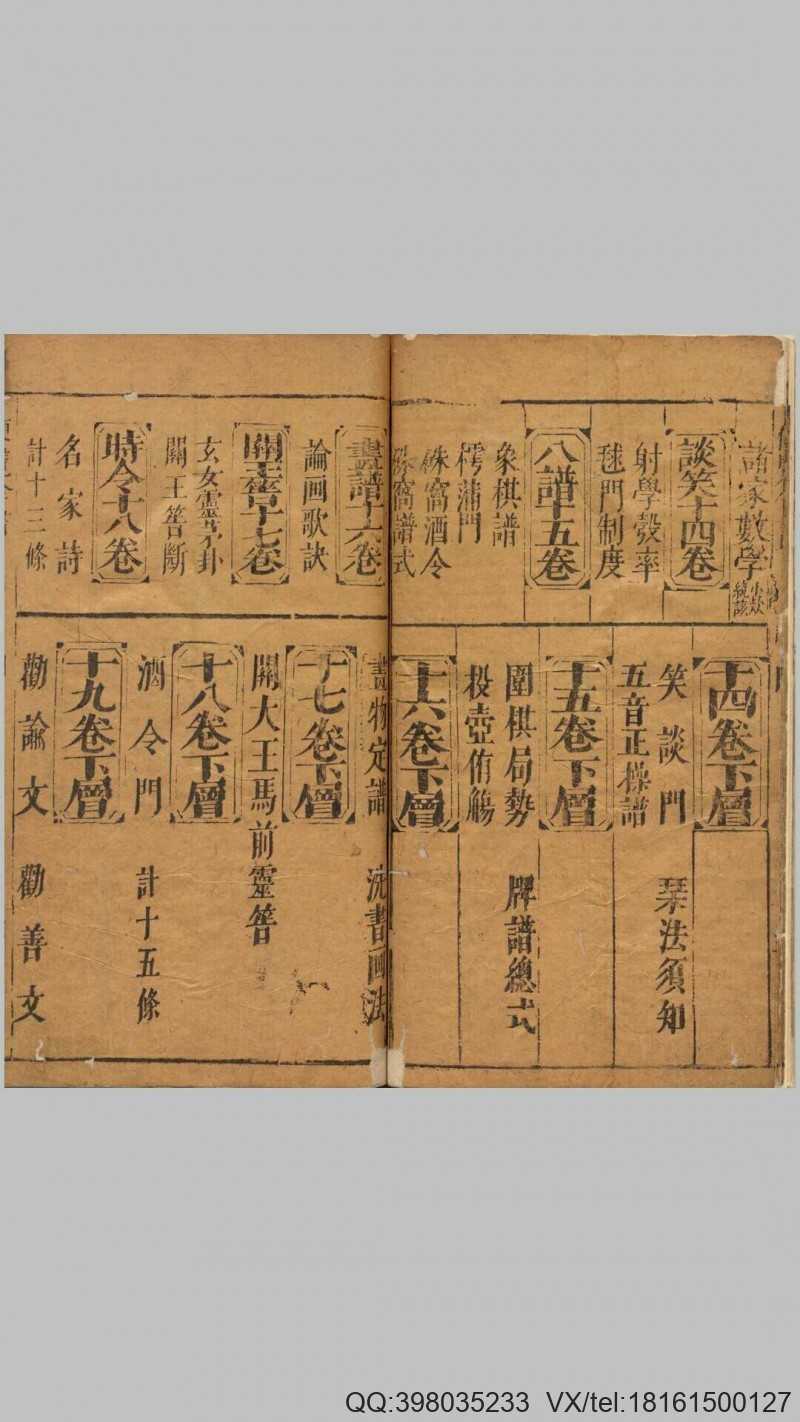 諸家數學
談笑十四卷
射學彀率
毬門制度
八譜十五卷
象棋譜
樗蒲門
窩酒令
窩譜式
十四卷下層
笑談門 琹法須知
五音正操譜
十五卷下層
圍棋局勢 牌譜總式
投壺侑觴
十六卷下層
畫譜十六卷
論画歌訣
關王籤十七卷
玄女靈卦
關王筶斷
時令十八卷
名家詩
計十三條
畫物定譜 画法
十七卷下層
關大王馬前靈筶
十八卷下層
酒令門 計十五條
十九卷下層
勸諭文 勸善文
QQ:398035233 VX/tel:18161500127